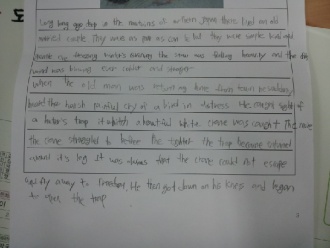 Long long ago ago in the mountains of northern Japan there lived an old
married couple They were as poor as can be but they were simple kind and
one evening winter's evening the snow was falling heavily and the
wind was blowing ever colder and stronger
when the old man was returning home from town he suddenly
heard the harsh painful cry of a bird in distress He caught sight of
a hunter's trap in which a beautiful white crane was caught The more
the crane struggled to the tighter the trap became
around its leg It was clear that the crane could not escape
and fly away to freedom, He then got down on his knees and began
to open the trap